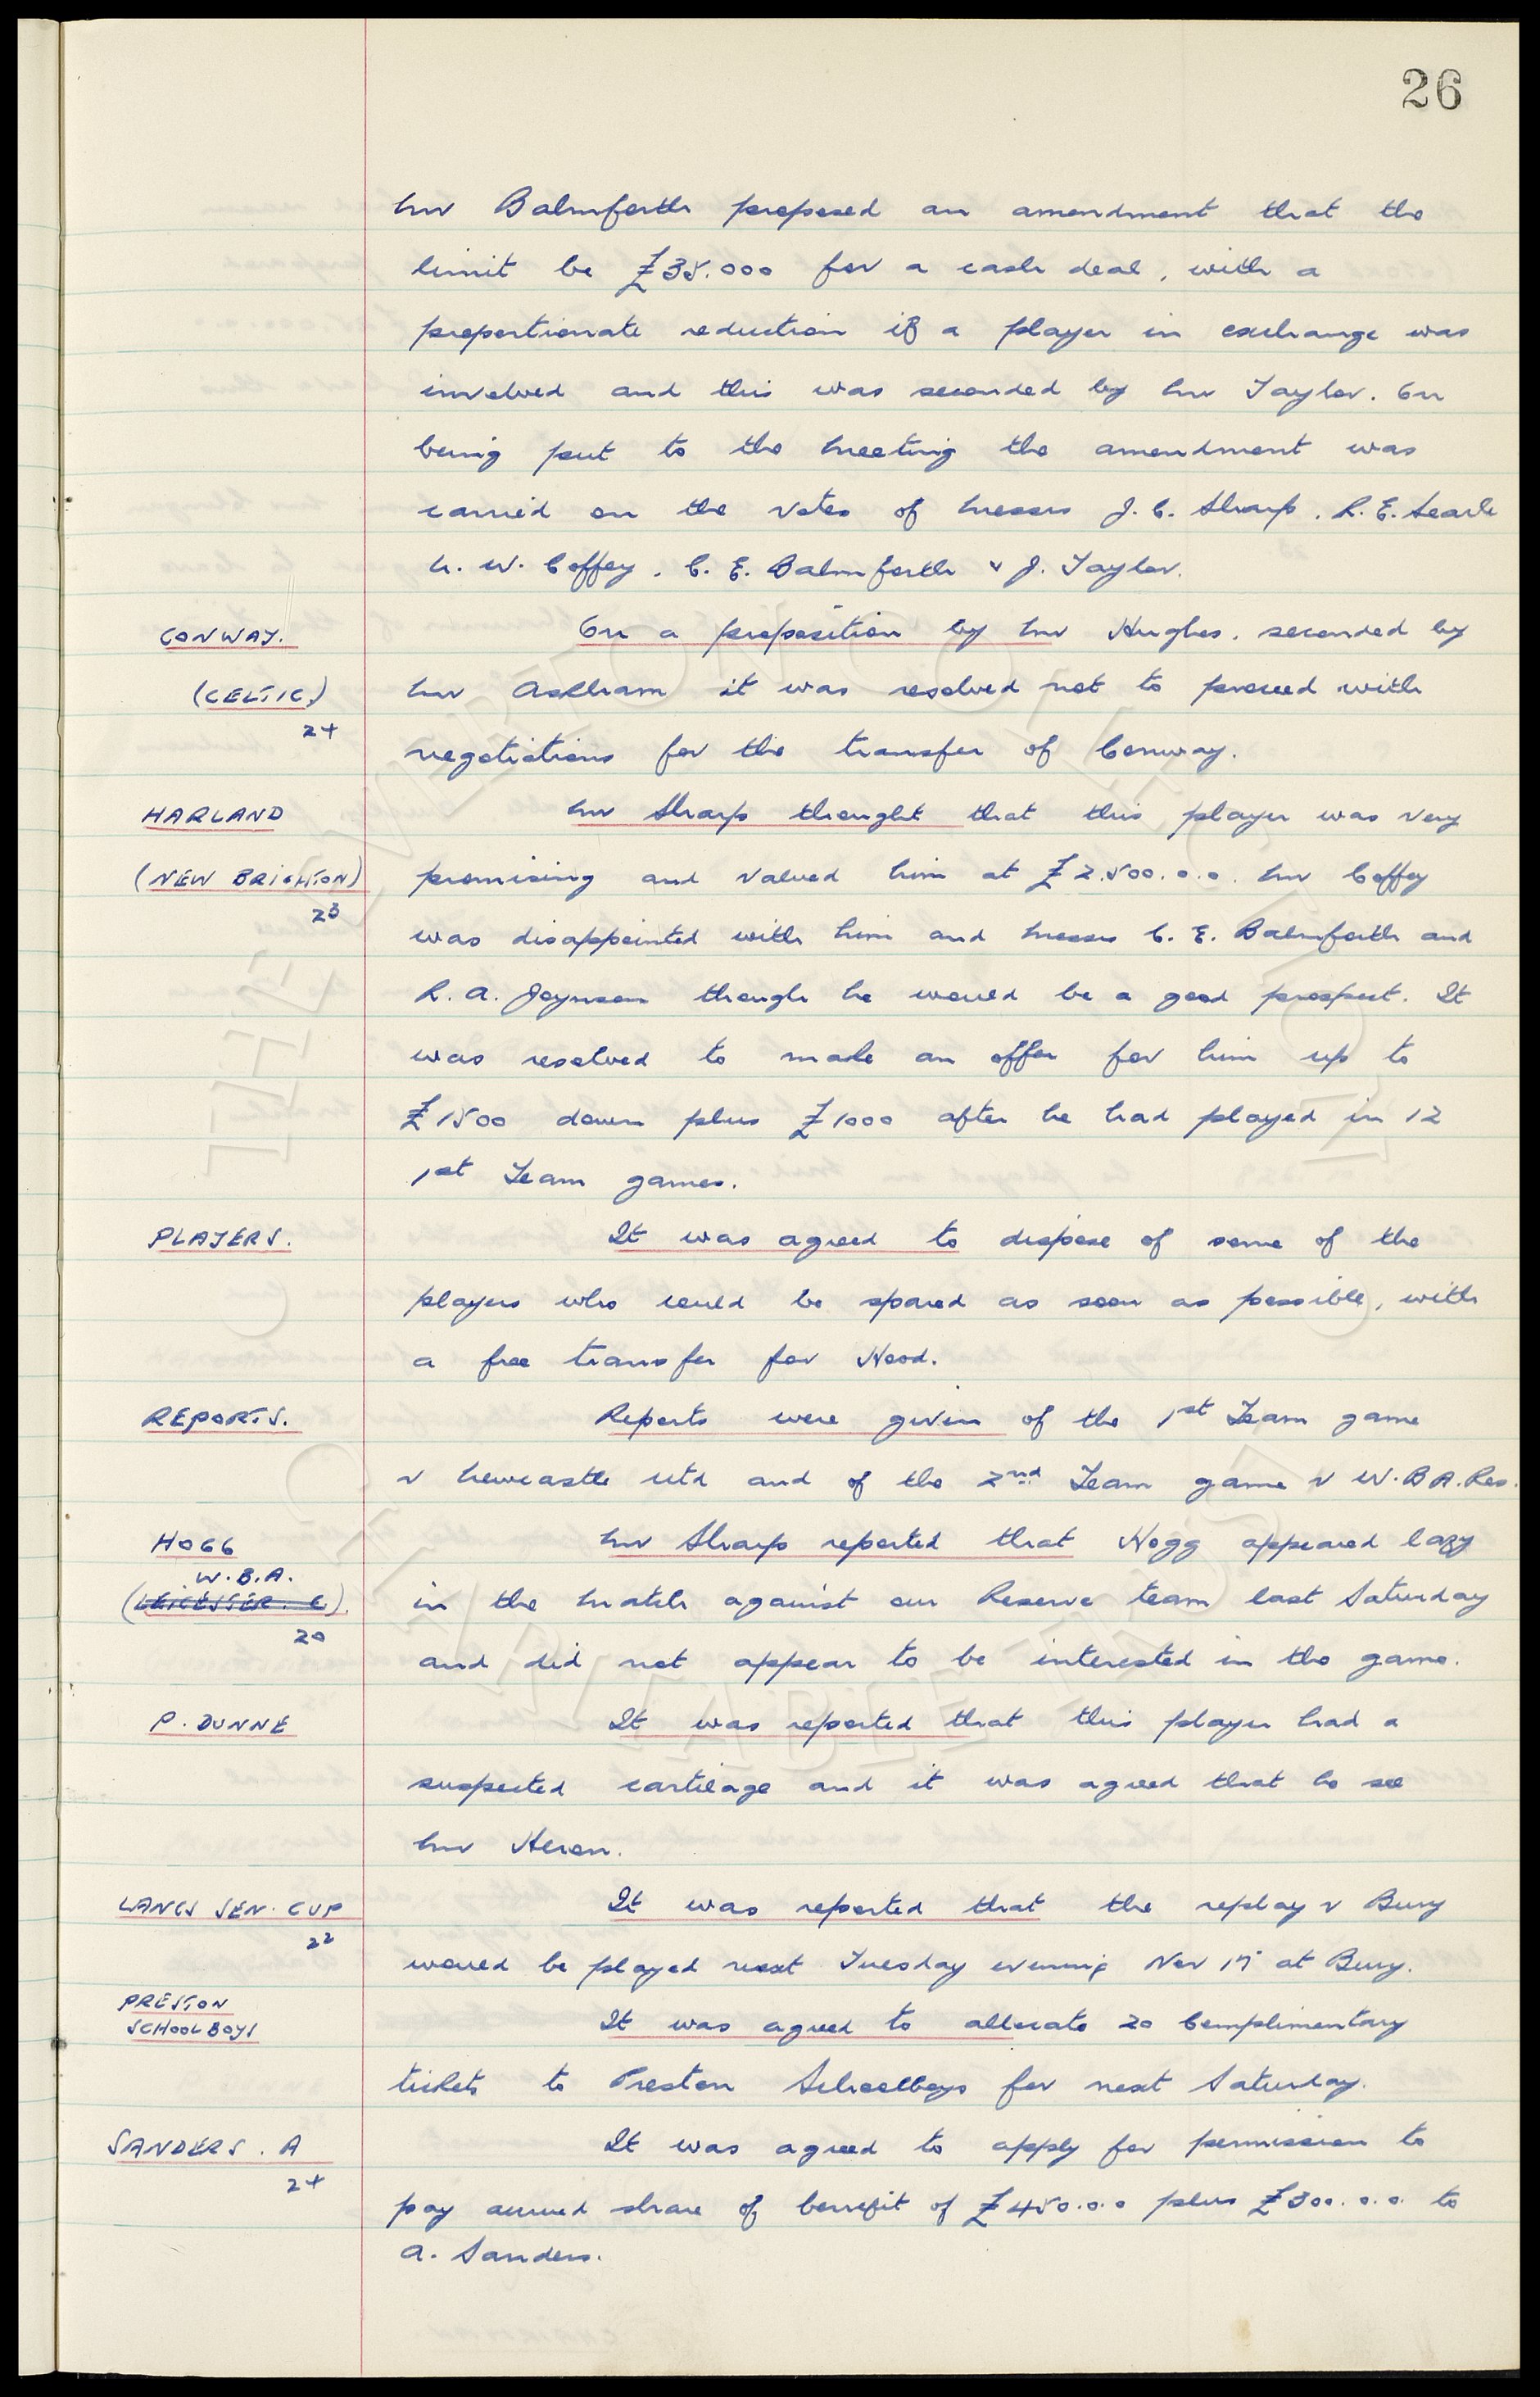 26
Mr Balmforth proposed an amendment that the
limit be £35.000 for a cash deal, with a
proportionate reduction if a player in exchange was
involved and this was seconded by Mr Taylor. On
being put to the Meeting the amendment was
carried on the votes of Messrs J. C. Sharp, R. E. Searle
N. W. Coffey, C. E. Balmforth & J. Taylor.
CONWAY. On a proposition by Mr Hughes, seconded by
(CELTIC) Mr Askham it was resolved not to proceed with
24
negotiations for the transfer of Conway.
HARLAND Mr Sharp thought that this player was very
(NEW BRIGHTON) promising and valued him at £2.500.0.0. Mr Coffey
23
was disappointed with him and Messrs C. E. Balmforth and
R. A. Joynson though he would be a good prospect. It
was resolved to make an offer for him up to
£1500 down plus £1000 after he had played in 12
1st Team games.
PLAYERS. It was agreed to dispose of some of the
players who could be spared as soon as possible, with
a free transfer for Hood.
REPORTS. Reports were given of the 1st Team game
v Newcastle Utd and of the 2nd Team game v W.B.A. Res.
HOGG Mr Sharp reported that Hogg appeared lazy
W.B.A.
(LEICESTER. C). in the match against our Reserve team last Saturday
20
and did not appear to be interested in the game.
P. DUNNE It was reported that this player had a
suspected cartilage and it was agreed that he see
Mr Heron.
LANCS SEN. CUP It was reported that the replay v Bury
22
would be played next Tuesday evening Nov 17 at Bury.
PRESTON
SCHOOLBOYS It was agreed to allocate 20 Complimentary
tickets to Preston Schoolboys for next Saturday.
SANDERS. A It was agreed to apply for permission to
24
pay accrued share of benefit of £450.0.0 plus £300.0.0. to
A. Sanders.